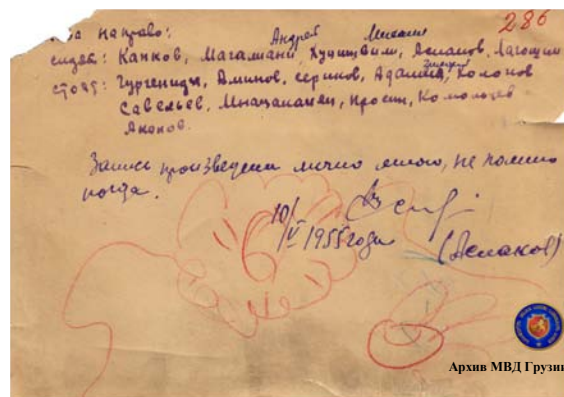 286
на направо:
Андрей Михаил
сидят: Капков, Магалиани, Хуцишвили, Аспанов,
стоят: Гургенидзе, Аминов, сериков, Колонов
Савельев, Мнацаканян, Кросин, Комольцев
Акопов.
Запись произведена лично мною, не помню
когда.
10/
/V 1955 года (Аспанов)
Архив МВД Грузии